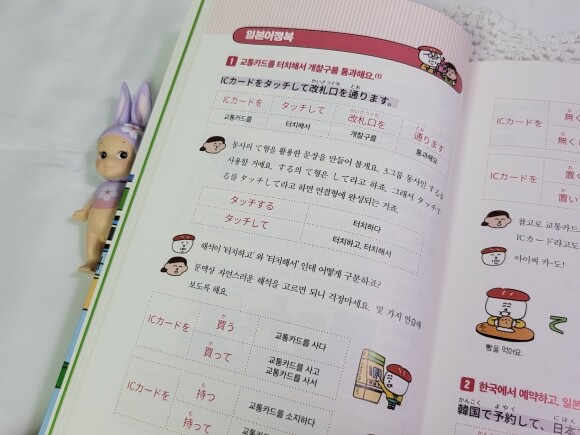 일본어정복
1 교통카드를 터치해서 개찰구를 통과해요.(1)
かいさつぐち とお
ICカードをタッチして改札口を通ります。
かいさつぐち とお
ICカードを タッチして 改札口を 通ります
교통카드를 터치해서 개찰구를 통과해요
동사의 て형을 활용한 문장을 만들어 볼게요. 3그룹 동사인 する를
사용할 거예요. する의 て형은 して라고 하죠. 그래서 タッチす
る를 タッチして라고 하면 연결형이 완성되는 거죠.
タッチする 터치하다
タッチして 터치하고, 터치해서
해석이 '터치하고'와 '터치해서'인데 어떻게 구분하죠?
문맥상 자연스러운 해석을 고르면 되니 걱정마세요. 몇 가지 연습해
보도록 해요.
か
ICカードを 買う 교통카드를 사다
か
買って 교통카드를 사고
교통카드를 사서
も
ICカードを 持つ 교통카드를 소지하다
も
持って
ICカードを
無く
無く
ICカードを
置く
置い
참고로 교통카드
ICカード라고도
아이씨 카-도!
て
빵을 먹어요.
2 한국에서 예약하고, 일본
かんこく よやく にほん
韓国で予約して、日本